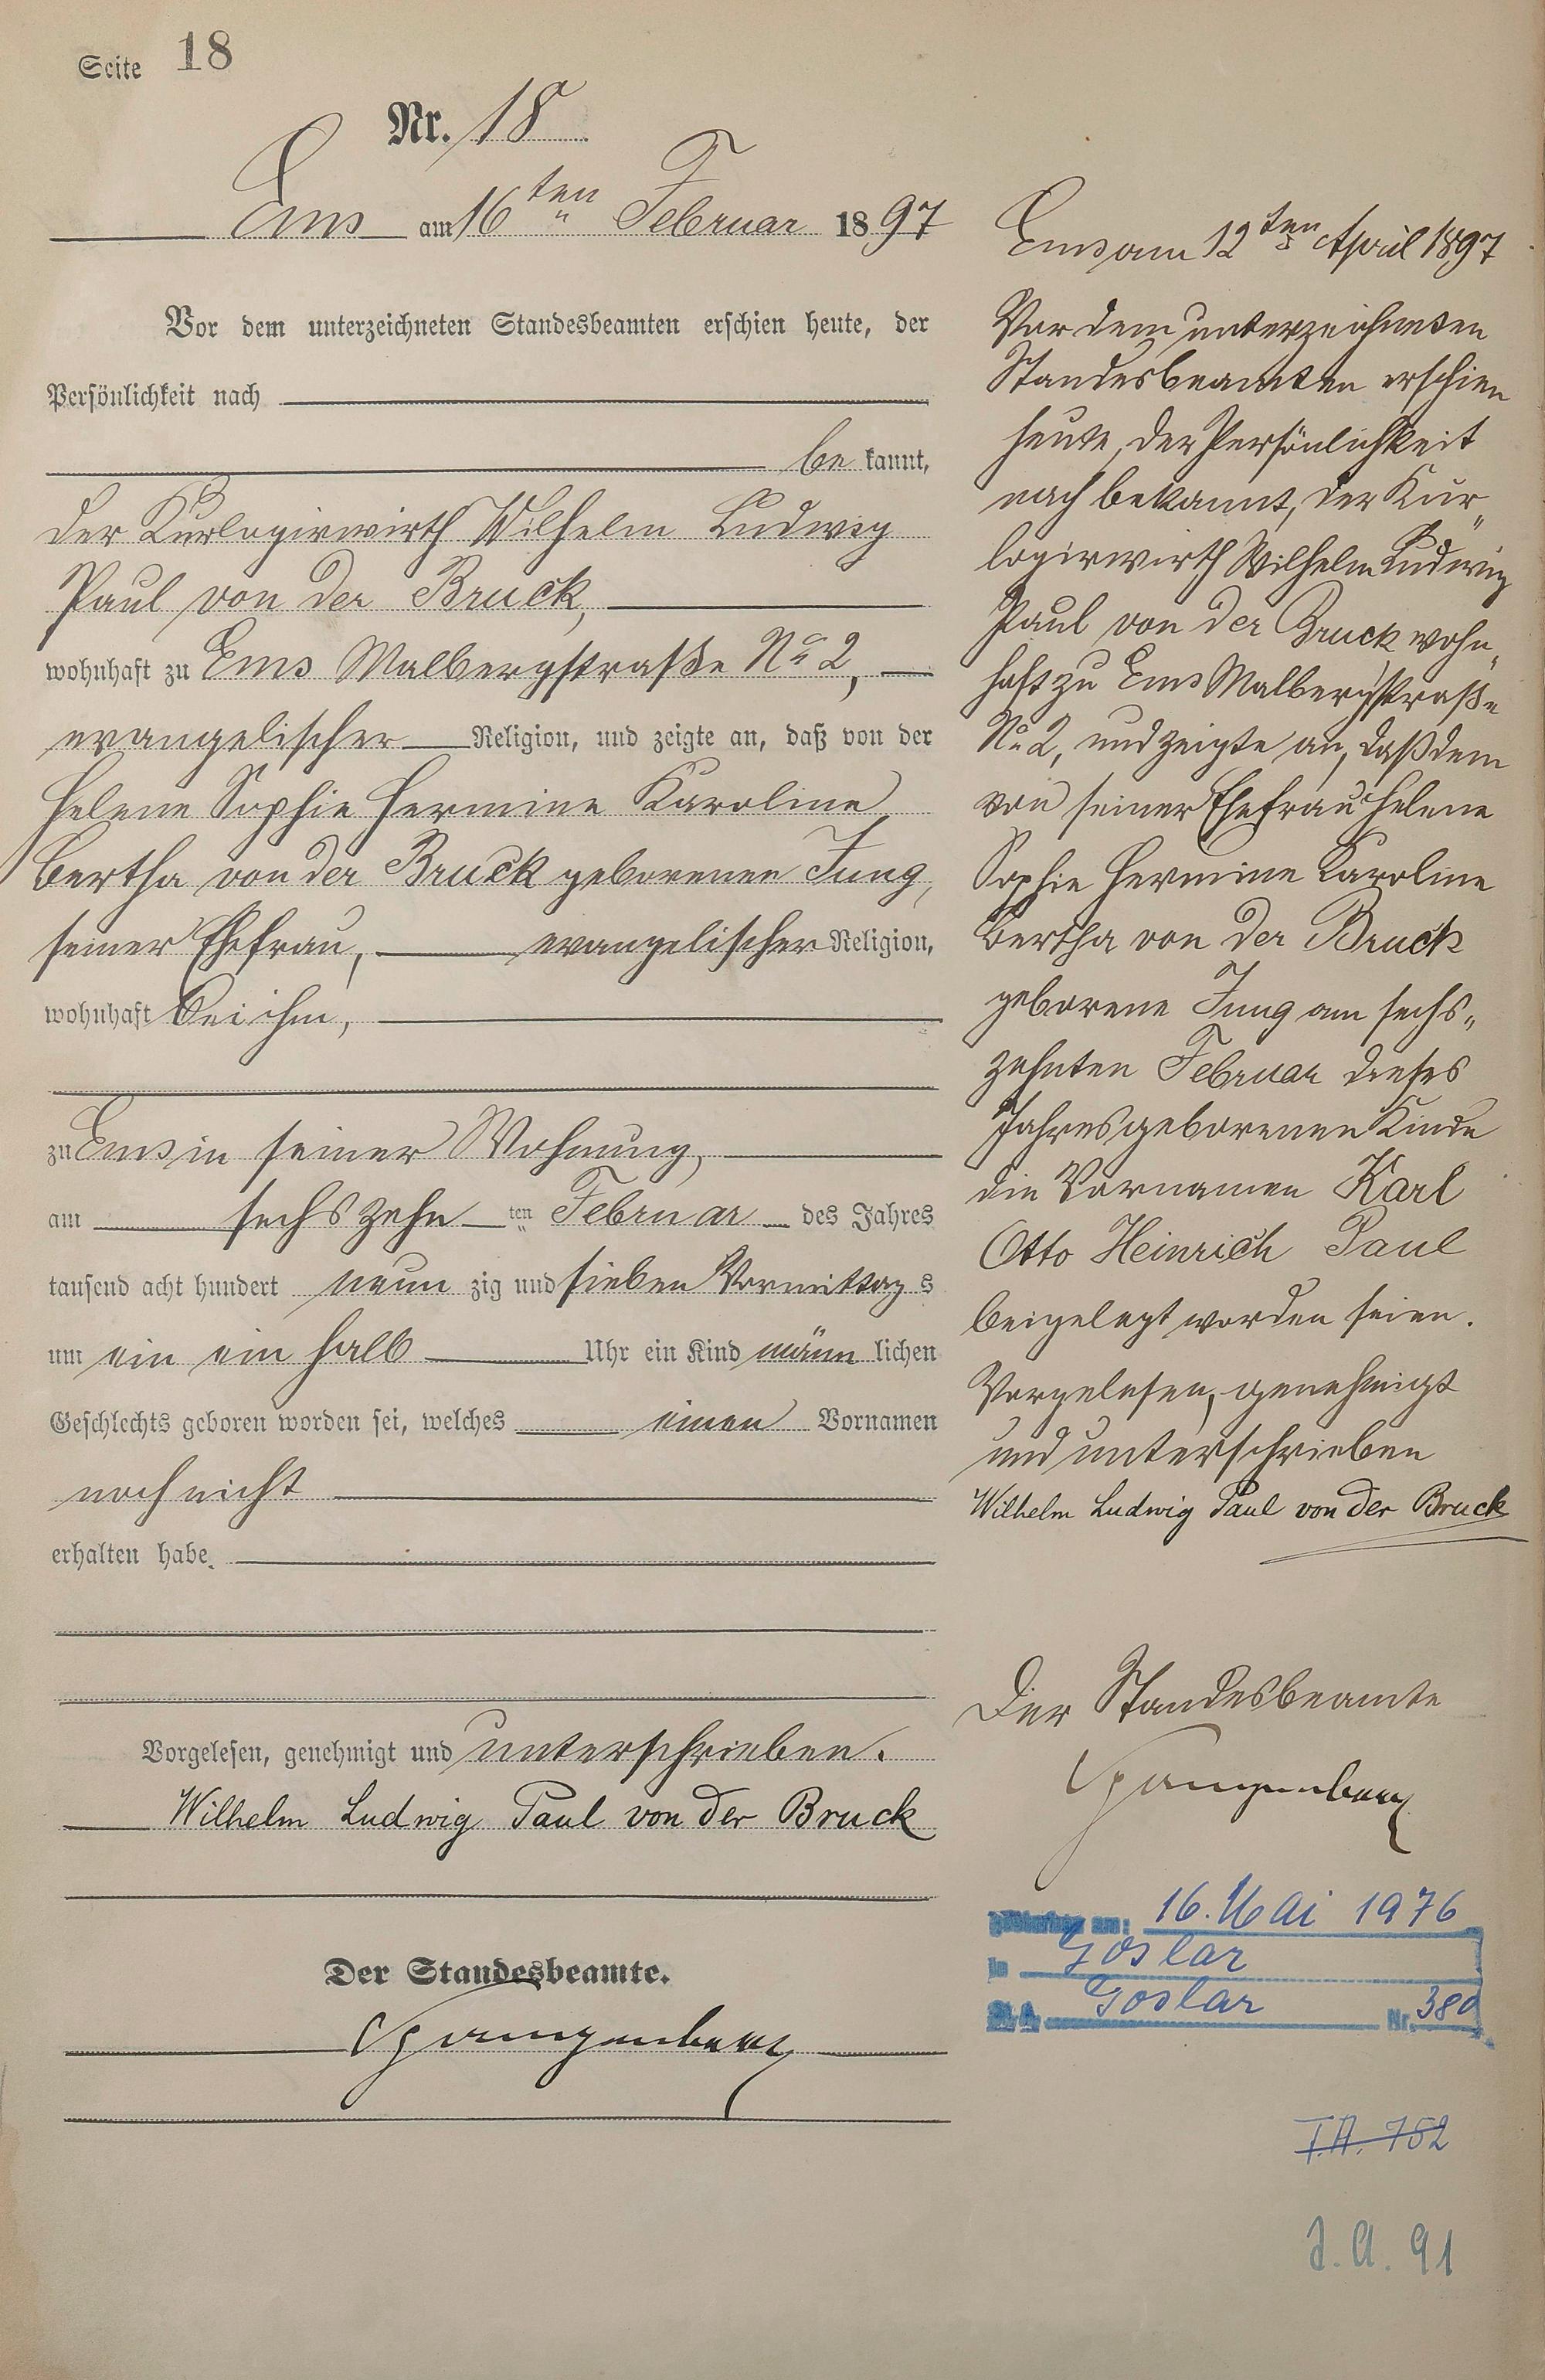 Seite 18
Nr. 18
Ems am 16ten Februar 1897
Vor dem unterzeichneten Standesbeamten erschien heute, der
Persönlichkeit nach
be kannt,
der Kurlogirwirth Wilhelm Ludwig
Paul von der Bruck,
wohnhaft zu Ems Malbergstraße No 2,
evangelischer Religion, und zeigte an, daß von der
Helene Sophie Hermine Karoline
Bertha von der Bruck geborenen Jung,
seiner Ehefrau, evangelischer Religion,
wohnhaft bei ihm,
zu Ems in seiner Wohnung,
am sechszehn ten Februar des Jahres
tausend acht hundert neun zig und sieben Vormittag s
um ein ein halb Uhr ein Kind männ lichen
Geschlechts geboren worden sei, welches einen Vornamen
noch nicht
erhalten habe.
Vorgelesen, genehmigt und unterschrieben.
Wilhelm Ludwig Paul von der Bruck
Der Standesbeamte.
Ems am 12ten April 1897
Vor dem unterzeichneten
Standesbeamten erschien
heute, der Persönlichkeit
nach bekannt, der Kur„
logirwirth Wilhelm Ludwig
Paul von der Bruck wohn„
haft zu Ems Malbergstraße
No 2, und zeigte an, daß dem
von seiner Ehefrau Helene
Sophie Hermine Karoline
Bertha von der Bruck
geborene Jung am sechs„
zehnten Februar dieses
Jahres geborenen Kinde
die Vornamen Karl
Otto Heinrich Paul
beigelegt worden seien.
Vorgelesen, genehmigt
und unterschrieben
Wilhelm Ludwig Paul von der Bruck
Der Standesbeamte
am: 16. Mai 1976
in Goslar
St. A. Goslar Nr. 380
T.A. 752
J. A. 91